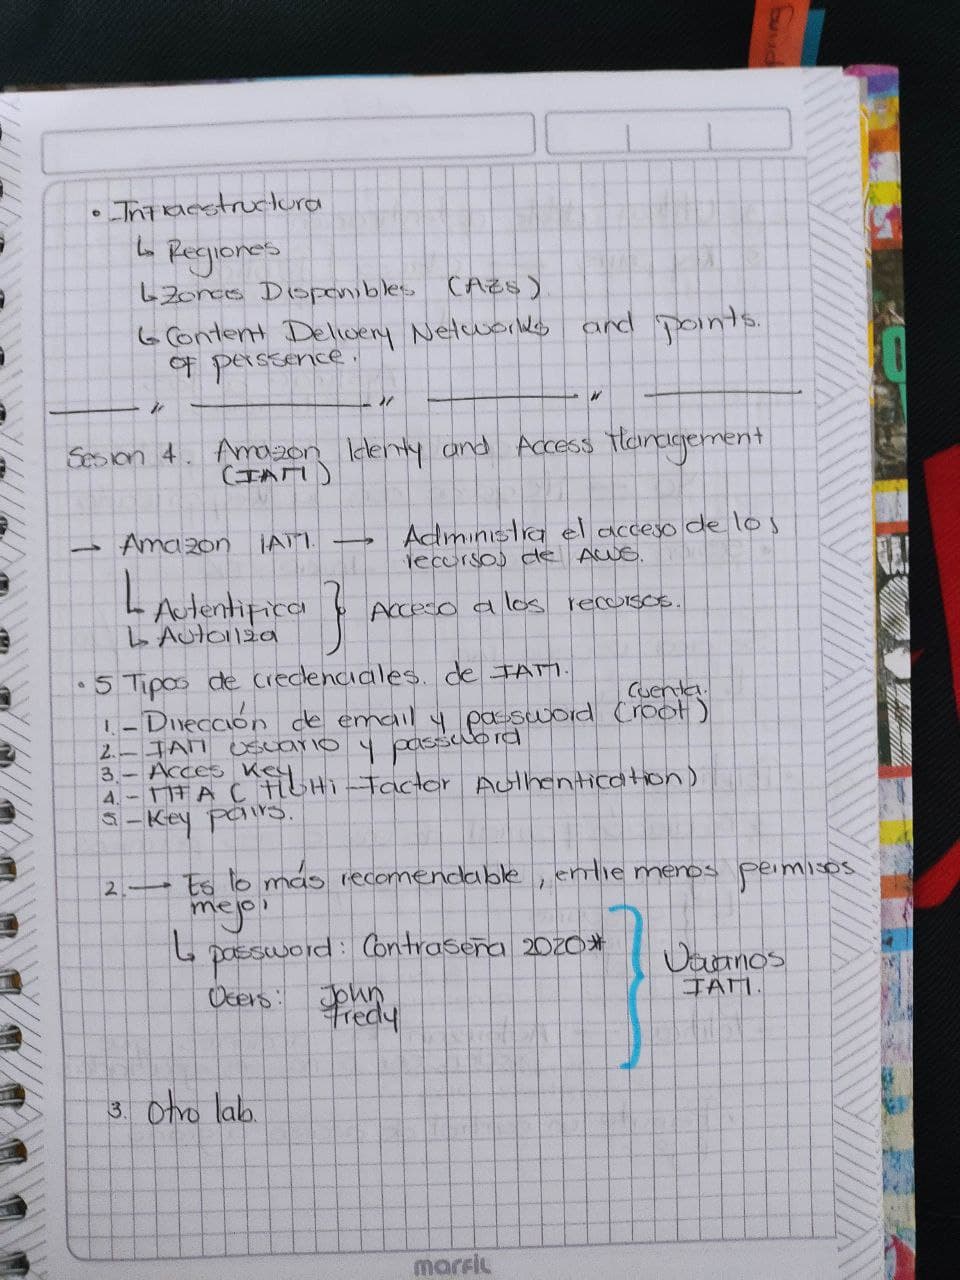 • Infraestructura
↳ Regiones
↳ Zonas Disponibles (AZs)
↳ Content Delivery Networks and points.
of perssence.
" " "
Sesion 4. Amazon Identy and Access Management
(IAM)
→ Amazon IAM. → Administra el acceso de los
recursos de AWS.
↳ Autentifica } Acceso a los recursos.
↳ Autoriza
• 5 Tipos de credenciales. de IAM.
cuenta.
1.- Dirección de email y password (root)
2.- IAM usuario y password
3.- Acces Key
4.- MFA (Multi-Factor Authentication)
5-Key pairs.
2. → Es lo más recomendable, entre menos permisos
mejor
↳ password: Contraseña 2020*
Users: John
Fredy
} Usuarios
IAM.
3. Otro lab.
marfil